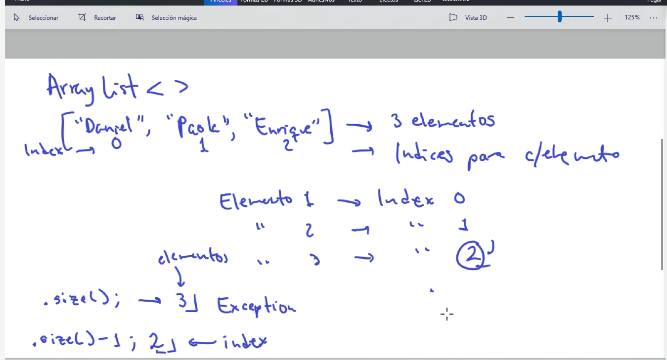 Seleccionar Recortar Selección mágica Vista 3D 125%
Array list < >
["Daniel", "Paok", "Enrique"] → 3 elementos
Index → 0 1 2 → Indices para c/elemento
Elemento 1 → Index 0
" 2 → " 1
elementos " 3 → " 2
.size(); → 3 Exception
.size()-1; 2 ← index